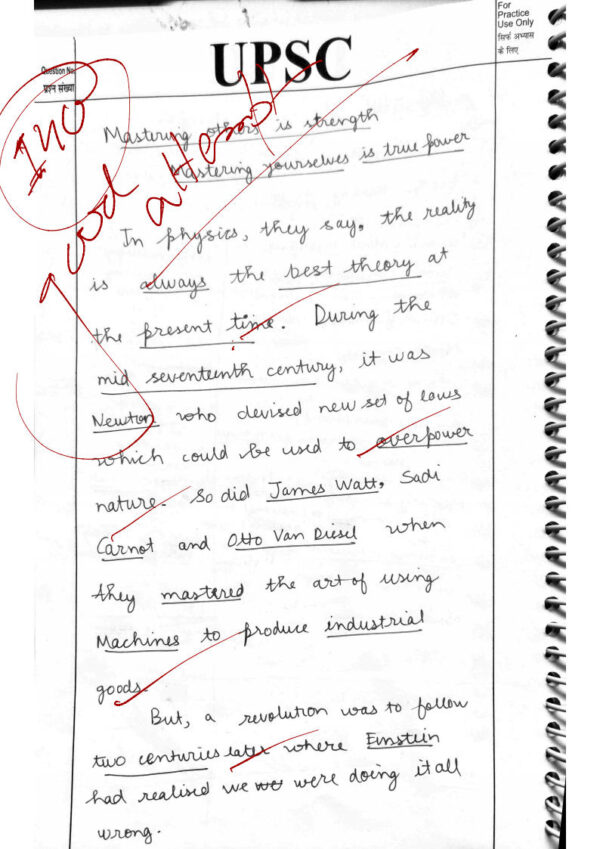 For
Practice
Use Only
सिर्फ अभ्यास
के लिए
UPSC
Question No.
प्रश्न संख्या
good attempt
Mastering others is strength
Mastering yourselves is true power
In physics, they say, the reality
is always the best theory at
the present time. During the
mid seventeenth century, it was
Newton who devised new set of laws
which could be used to overpower
nature. So did James Watt, Sadi
Carnot and Otto Van Diesel when
they mastered the art of using
Machines to produce industrial
goods.
But, a revolution was to follow
two centuries later where Einstein
had realised we were doing it all
wrong.